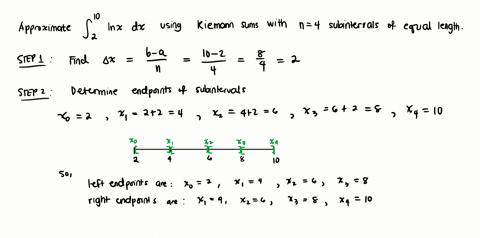 Approximate ∫₂¹⁰ ln x dx using Riemann sums with n=4 subintervals of equal length.
STEP 1: Find Δx = (b-a)/n = (10-2)/4 = 8/4 = 2
STEP 2: Determine endpoints of subintervals
x₀ = 2 , x₁ = 2+2 = 4 , x₂ = 4+2 = 6 , x₃ = 6+2 = 8 , x₄ = 10
x₀ x₁ x₂ x₃ x₄
2 4 6 8 10
So,
left endpoints are: x₀ = 2, x₁ = 4, x₂ = 6, x₃ = 8
right endpoints are: x₁ = 4, x₂ = 6, x₃ = 8, x₄ = 10